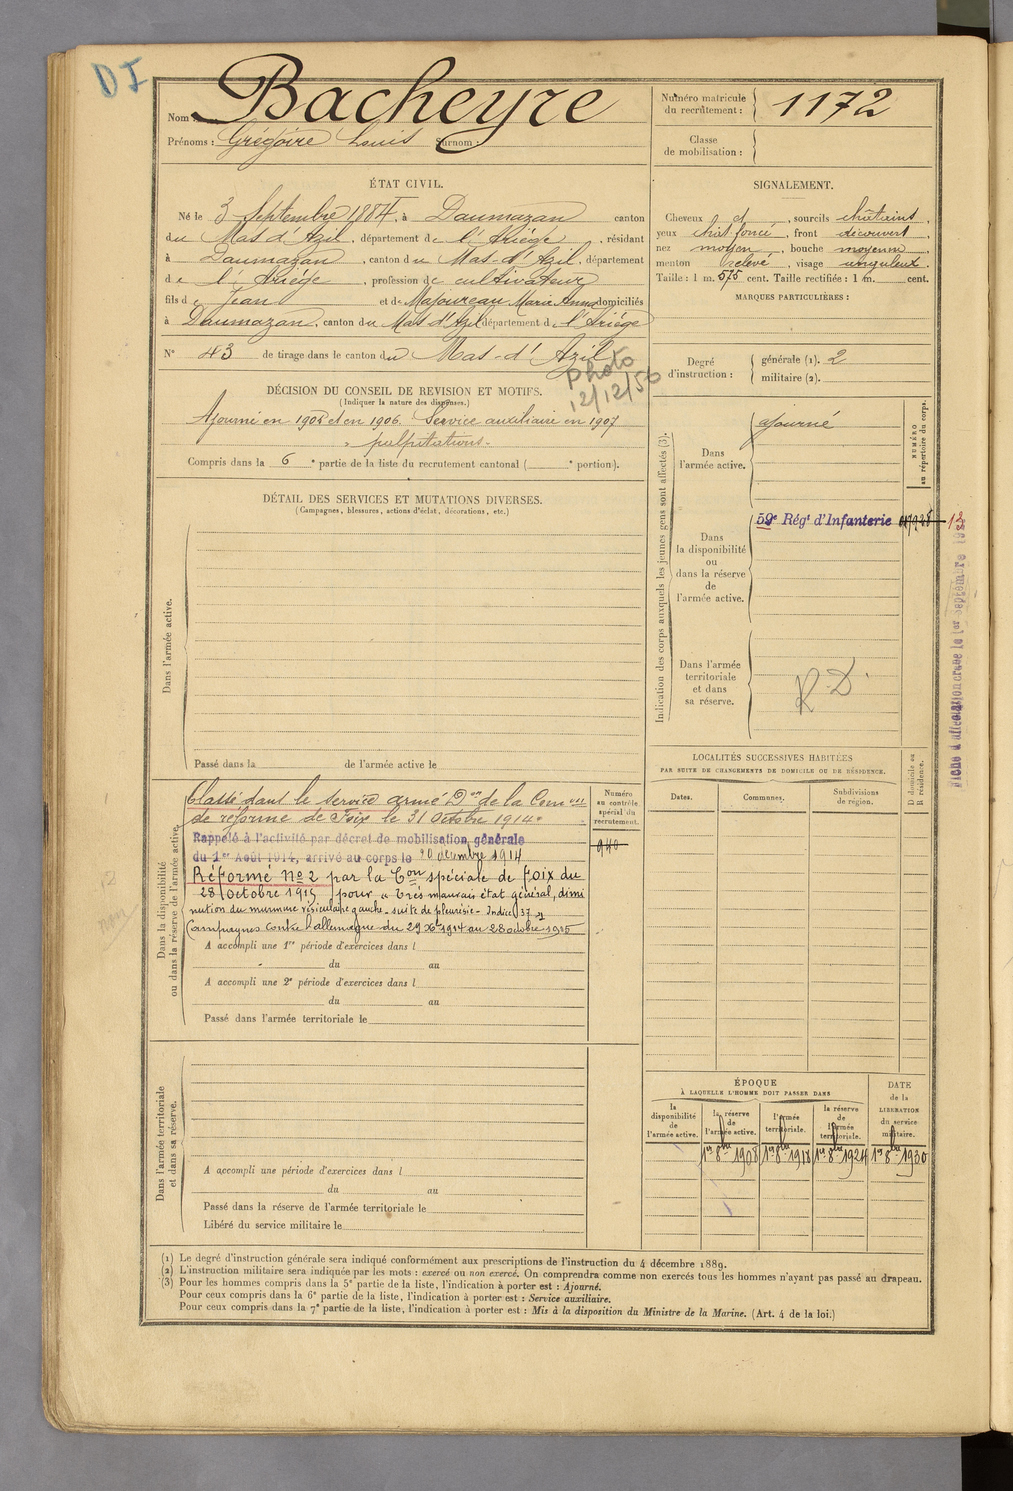 DI
Nom : Bacheyre
Prénoms : Grégoire Louis Surnom :
Numéro matricule du recrutement : 1172
Classe de mobilisation :
ÉTAT CIVIL.
Né le 3 Septembre 1884, à Daumazan canton
du Mas d'Azil, département de l'Ariège, résidant
à Daumazan, canton du Mas-d'Azil, département
de l'Ariège, profession de cultivateur
fils de Jean et de Majoureau Marie Anna domiciliés
à Daumazan, canton du Mas d'Azil département de l'Ariège
N° 43 de tirage dans le canton du Mas-d'Azil
Photo
12/12/56
SIGNALEMENT.
Cheveux d, sourcils châtains,
yeux chât. foncé, front découvert,
nez moyen, bouche moyenne,
menton relevé, visage anguleux.
Taille : 1 m. 575 cent. Taille rectifiée : 1 m. cent.
MARQUES PARTICULIÈRES :
Degré d'instruction : générale (1). 2
militaire (2).
DÉCISION DU CONSEIL DE REVISION ET MOTIFS.
(Indiquer la nature des dispenses.)
Ajourné en 1905 et en 1906. Service auxiliaire en 1907
palpitations.
Compris dans la 6e partie de la liste du recrutement cantonal ( e portion).
DÉTAIL DES SERVICES ET MUTATIONS DIVERSES.
(Campagnes, blessures, actions d'éclat, décorations, etc.)
Dans l'armée active.
Passé dans la de l'armée active le
Indication des corps auxquels les jeunes gens sont affectés (3).
NUMÉRO au répertoire du corps.
Dans l'armée active.
ajourné
59e Régt d'Infanterie
12
Dans la disponibilité ou dans la réserve de l'armée active.
Dans l'armée territoriale et dans sa réserve.
R D
Dans la disponibilité ou dans la réserve de l'armée active.
Numéro au contrôle spécial du recrutement.
940
Classé dans le service armé Don de la Comon
de réforme de Foix le 31 Octobre 1914
Rappelé à l'activité par décret de mobilisation générale
du 1er Août 1914, arrivé au corps le 20 décembre 1914
Réformé No 2 par la Con spéciale de Foix du
28 Octobre 1915 pour « très mauvais état général, dimi
nution du murmure vésiculaire gauche - suite de pleurésie - Indice 37
Campagnes contre l'allemagne du 29 Xbre 1914 au 28 octobre 1915
A accompli une 1re période d'exercices dans l
du au
A accompli une 2e période d'exercices dans l
du au
Passé dans l'armée territoriale le
LOCALITÉS SUCCESSIVES HABITÉES
PAR SUITE DE CHANGEMENTS DE DOMICILE OU DE RÉSIDENCE.
Dates. Communes. Subdivisions de région. D domicile ou R résidence.
Dans l'armée territoriale et dans sa réserve.
A accompli une période d'exercices dans l
du au
Passé dans la réserve de l'armée territoriale le
Libéré du service militaire le
ÉPOQUE
À LAQUELLE L'HOMME DOIT PASSER DANS
la disponibilité de l'armée active.
la réserve de l'armée active.
l'armée territoriale.
la réserve de l'armée territoriale.
DATE de la LIBÉRATION du service militaire.
1er 8bre 1908 1er 8bre 1918 1er 8bre 1924 1er 8bre 1930
(1) Le degré d'instruction générale sera indiqué conformément aux prescriptions de l'instruction du 4 décembre 1889.
(2) L'instruction militaire sera indiquée par les mots : exercé ou non exercé. On comprendra comme non exercés tous les hommes n'ayant pas passé au drapeau.
(3) Pour les hommes compris dans la 5e partie de la liste, l'indication à porter est : Ajourné.
Pour ceux compris dans la 6e partie de la liste, l'indication à porter est : Service auxiliaire.
Pour ceux compris dans la 7e partie de la liste, l'indication à porter est : Mis à la disposition du Ministre de la Marine. (Art. 4 de la loi.)